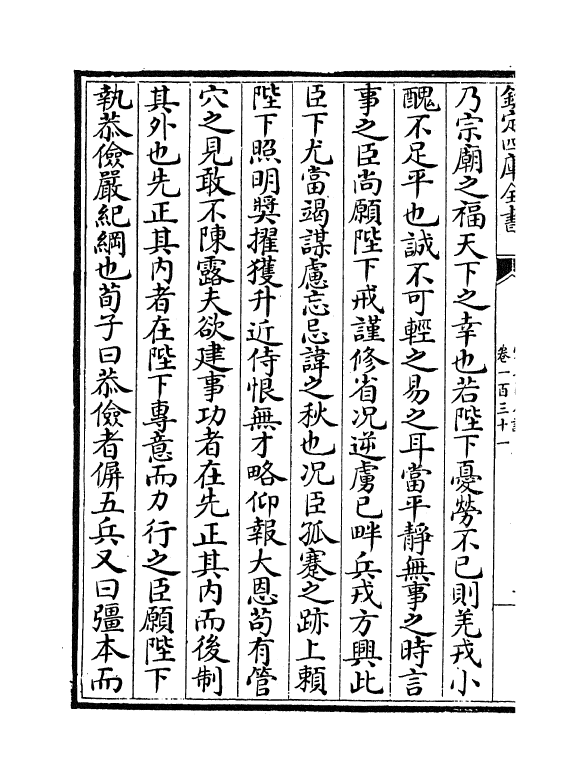 欽定四庫全書
卷一百三十一
乃宗廟之福天下之幸也若陛下憂勞不已則羌戎小
醜不足平也誠不可輕之易之耳當平靜無事之時言
事之臣尚願陛下戒謹修省况逆虜已畔兵戎方興此
臣下尤當竭謀慮忘忌諱之秋也况臣孤蹇之跡上頼
陛下照明奬擢獲升近侍恨無才略仰報大恩茍有管
穴之見敢不陳露夫欲建事功者在先正其内而後制
其外也先正其内者在陛下專意而力行之臣願陛下
執恭儉嚴紀綱也荀子曰恭儉者偋五兵又曰彊本而